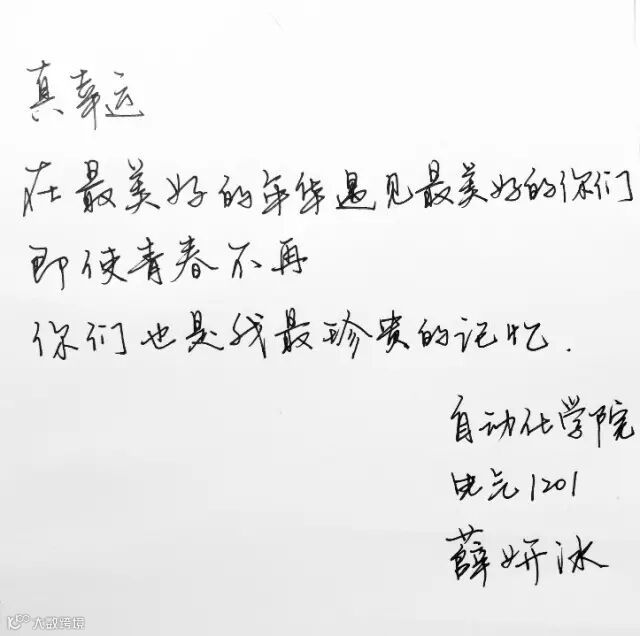 真幸运
在最美好的年华遇见最美好的你们
即使青春不再
你们也是我最珍贵的记忆.
自动化学院
电气1201
薛妍冰
大数跨境